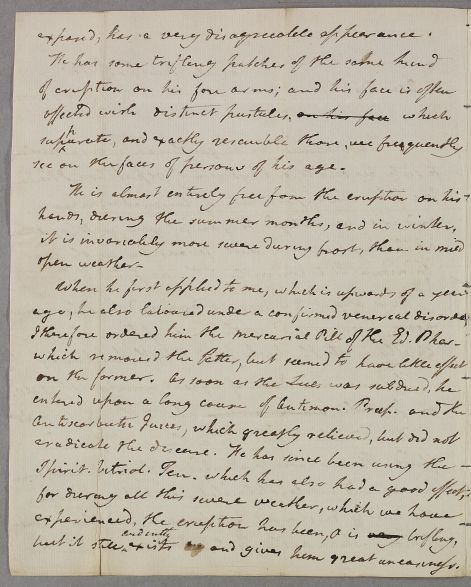 exposed, has a very disagreeable appearance.
He has some trifling patches of the same kind
of eruption on his fore arms; and his face is often
affected with distinct pustules, on his face which
suppurate, and exactly resemble those, we frequently
see on the faces of persons of his age.
He is almost entirely free from the eruption on his
hands, during the summer months, and in winter,
it is invariably more severe during frost, than in mild
open weather.
When he first applied to me, which is upwards of a year
ago, he also laboured under a confirmed venereal disorder
I therefore ordered him the mercurial Pill of the Ed. Phar-
which removed the latter, but seemed to have little effect
on the former. As soon as the Lues was subdued, he
entered upon a long course of Antimon. Prep. and the
Antiscorbutic Juices, which greatly relieved, but did not
eradicate the disease. He has since been using the
Spirit. Vitriol. Ten. which has also had a good effect,
for during all this severe weather, which we have
experienced, the eruption has been, & is very trifling,
but it still evidently exists and gives him great uneasiness.